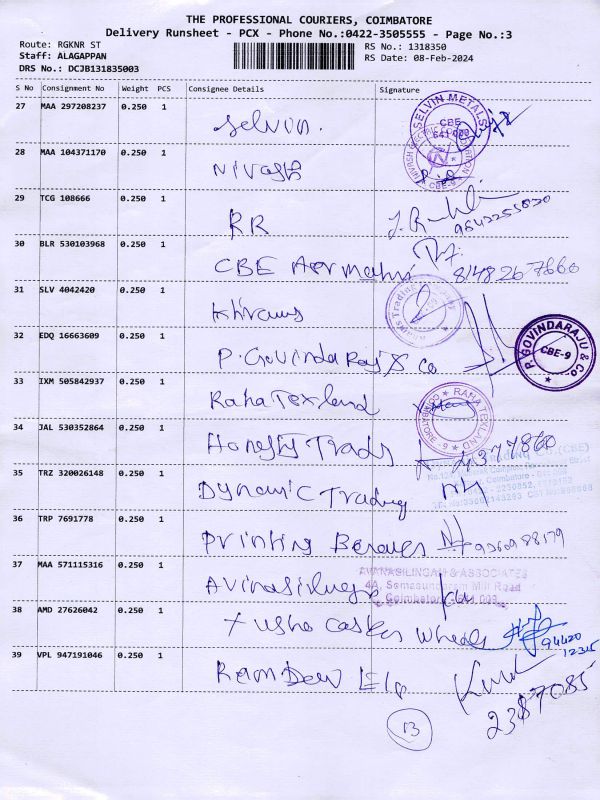 THE PROFESSIONAL COURIERS, COIMBATORE
Delivery Runsheet - PCX - Phone No.:0422-3505555 - Page No.:3
Route: RGKNR ST
RS No.: 1318350
Staff: ALAGAPPAN
RS Date: 08-Feb-2024
DRS No.: DCJB131835003
S No Consignment No Weight PCS Consignee Details Signature
27 MAA 297208237 0.250 1 Selvin.
SELVIN METALS CBE 641 009
28 MAA 104371170 0.250 1 Nivash
CBE-9
29 TCG 108666 0.250 1 RR
30 BLR 530103968 0.250 1 CBE
8148267660
31 SLV 4042420 0.250 1
Trading
32 EDQ 16663609 0.250 1 P. Govinda Raj & Co
P. GOVINDARAJU & CO CBE-9
33 IXM 505842937 0.250 1 Raha Texland
RAHA TEXLAND COIMBATORE - 9
34 JAL 530352864 0.250 1 Honesty Trads 4377860
35 TRZ 320026148 0.250 1 Dynamic Trading
36 TRP 7691778 0.250 1 Printing
37 MAA 571115316 0.250 1
AVINASILINGAM & ASSOCIATES
4A, Somasundaram Mill Road
Coimbatore - 641 009
38 AMD 27626042 0.250 1 Wheels
94420
12315
39 VPL 947191046 0.250 1 Ram Dev
2387085
13